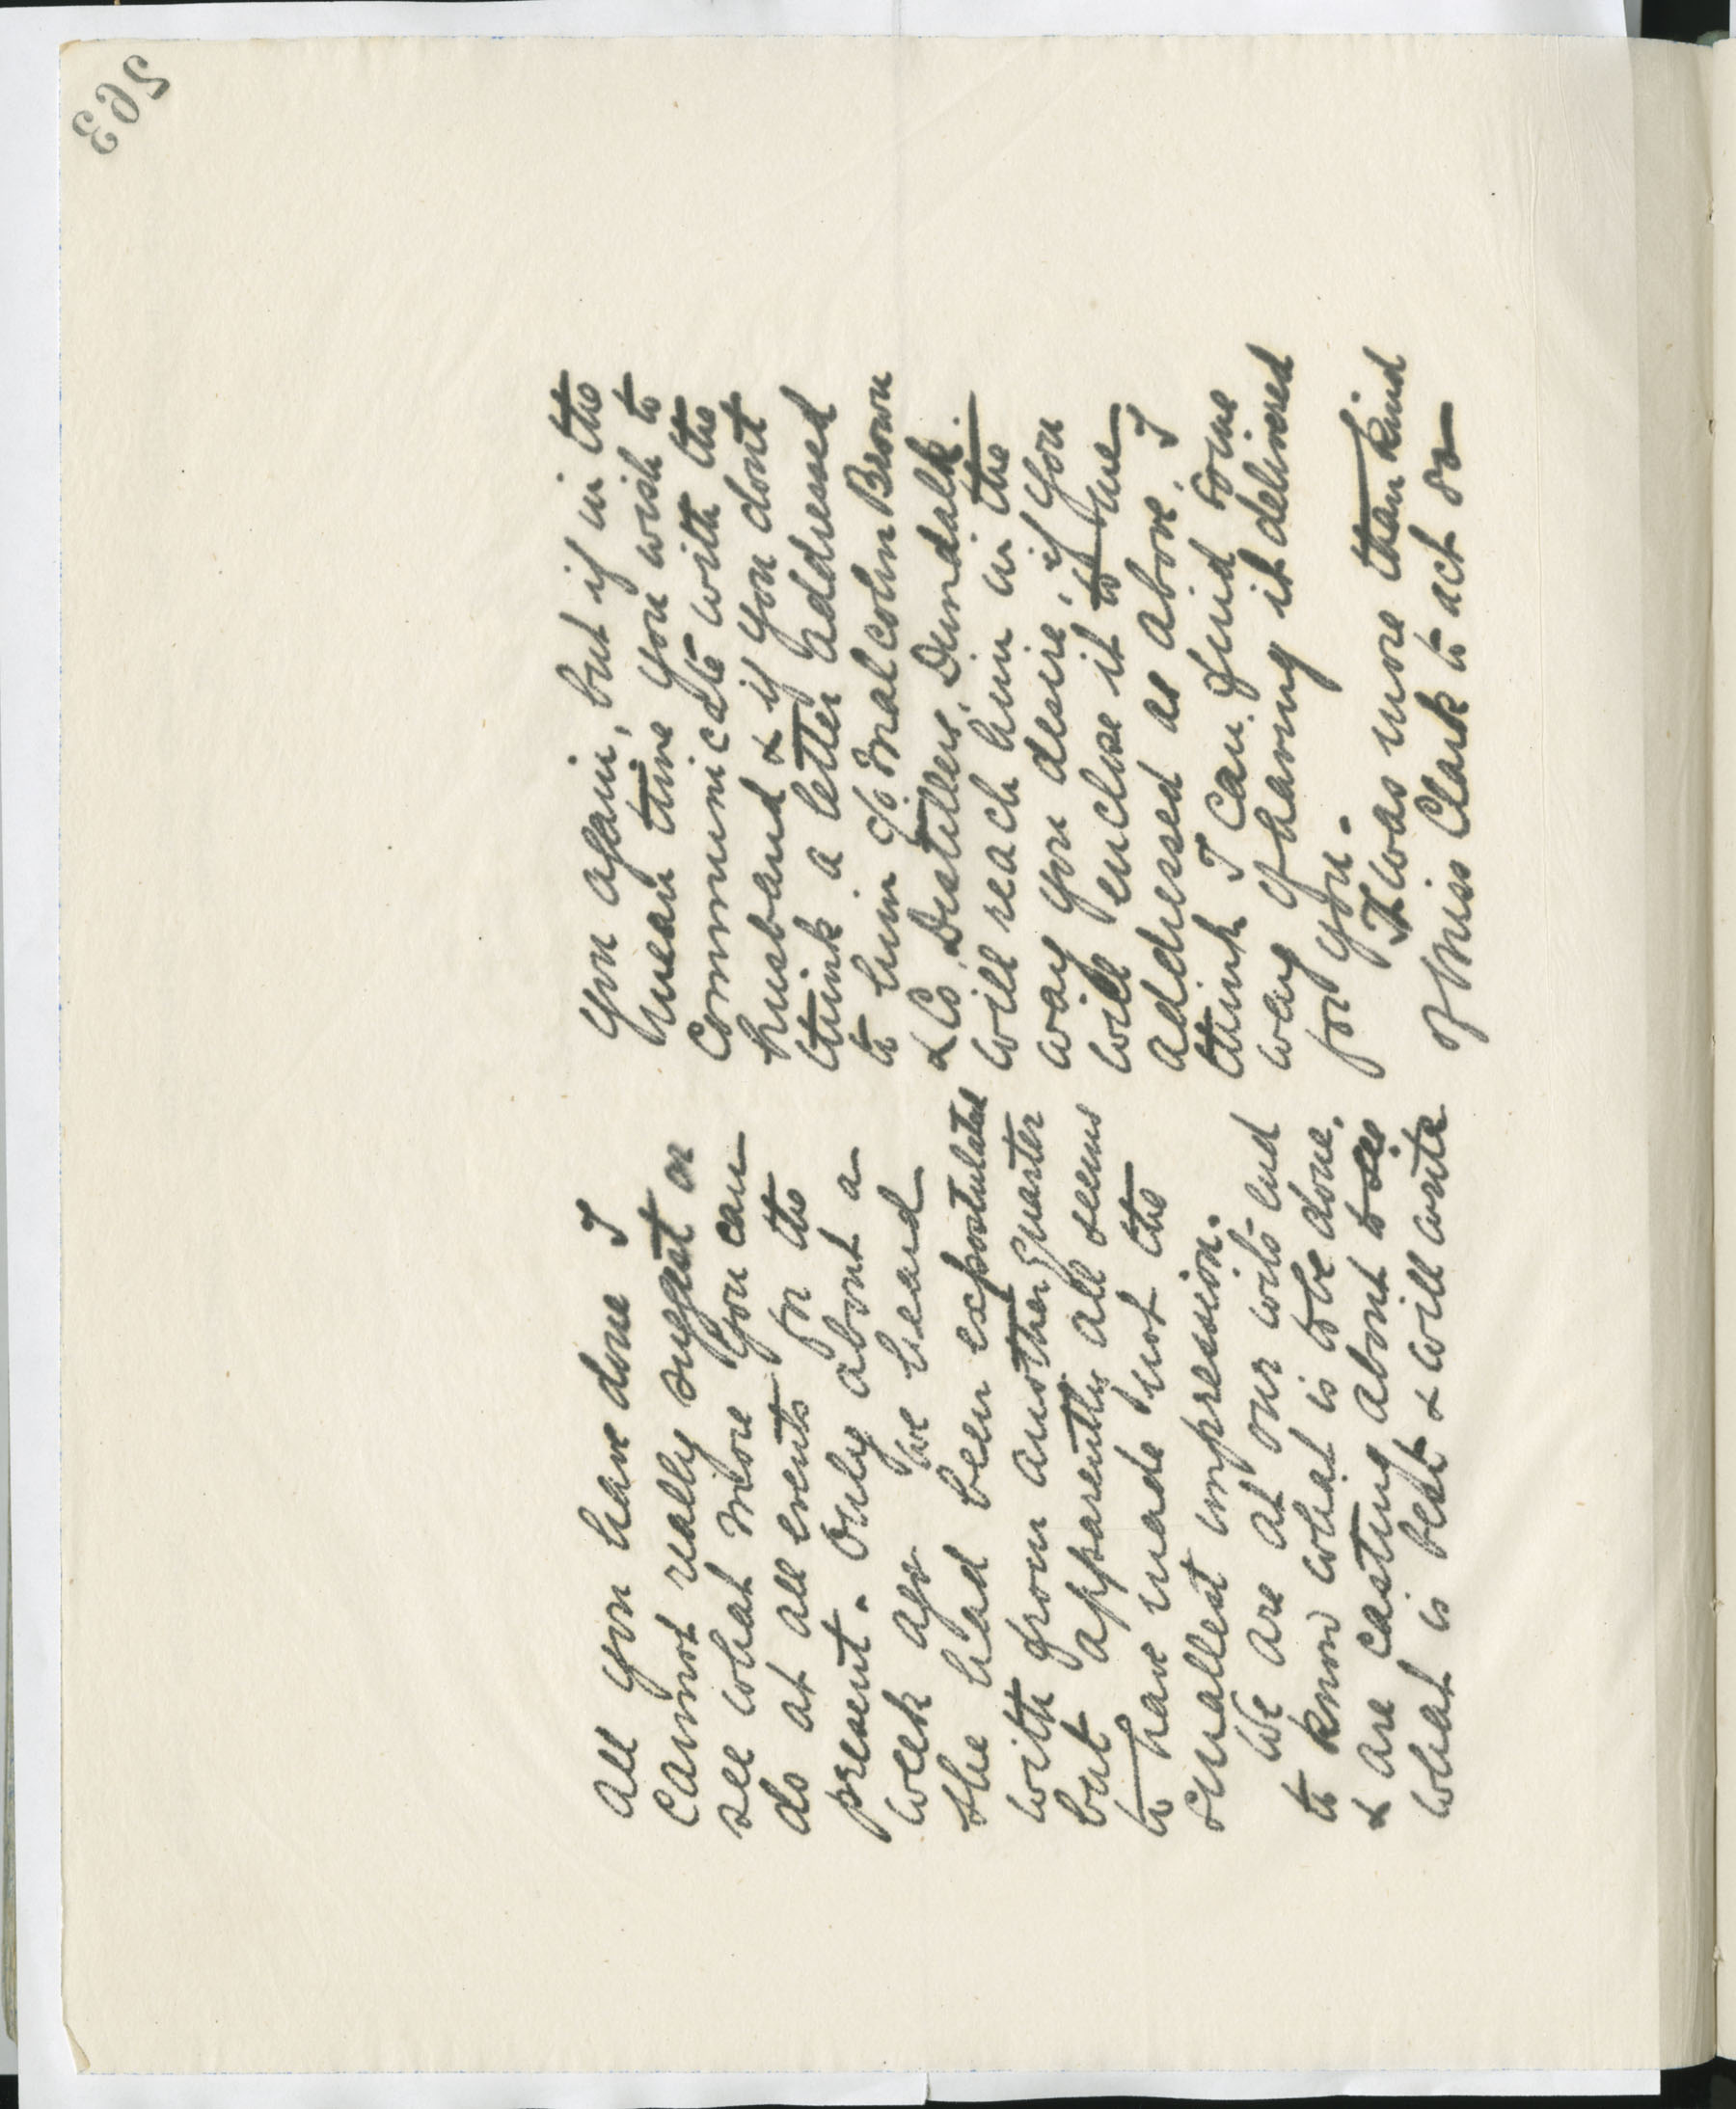 263
all you have done I
cannot really suggest or
see what more you can
do at all events for the
present. Only about a
week ago we heard
she had been expostulated
with from another quarter
but apparently all seems
to have made not the
smallest impression.
We are at our wits end
to know what is to be done,
& are casting about to see
what is best & will write
you again, but if in the
mean time you wish to
communicate with the
husband & if you dont
think a letter addressed
to him c/o Malcolm Brown
& Co, Distillers, Dundalk.
will reach him in the
way you desire, if you
will enclose it to me
addressed as above, I
think I can find some
way of having it delivered
for you.
It was more than kind
of Miss Clark to act so